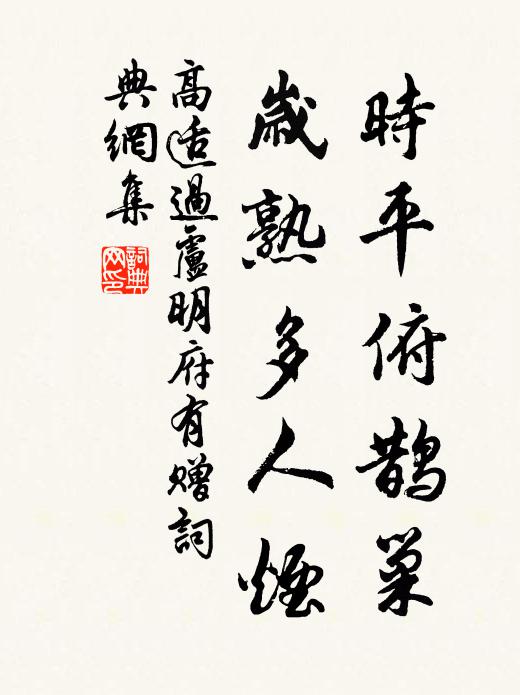 時平俯鵲巢
歲熟多人煙
高适過盧明府有贈詞
典網集
詞典
网印